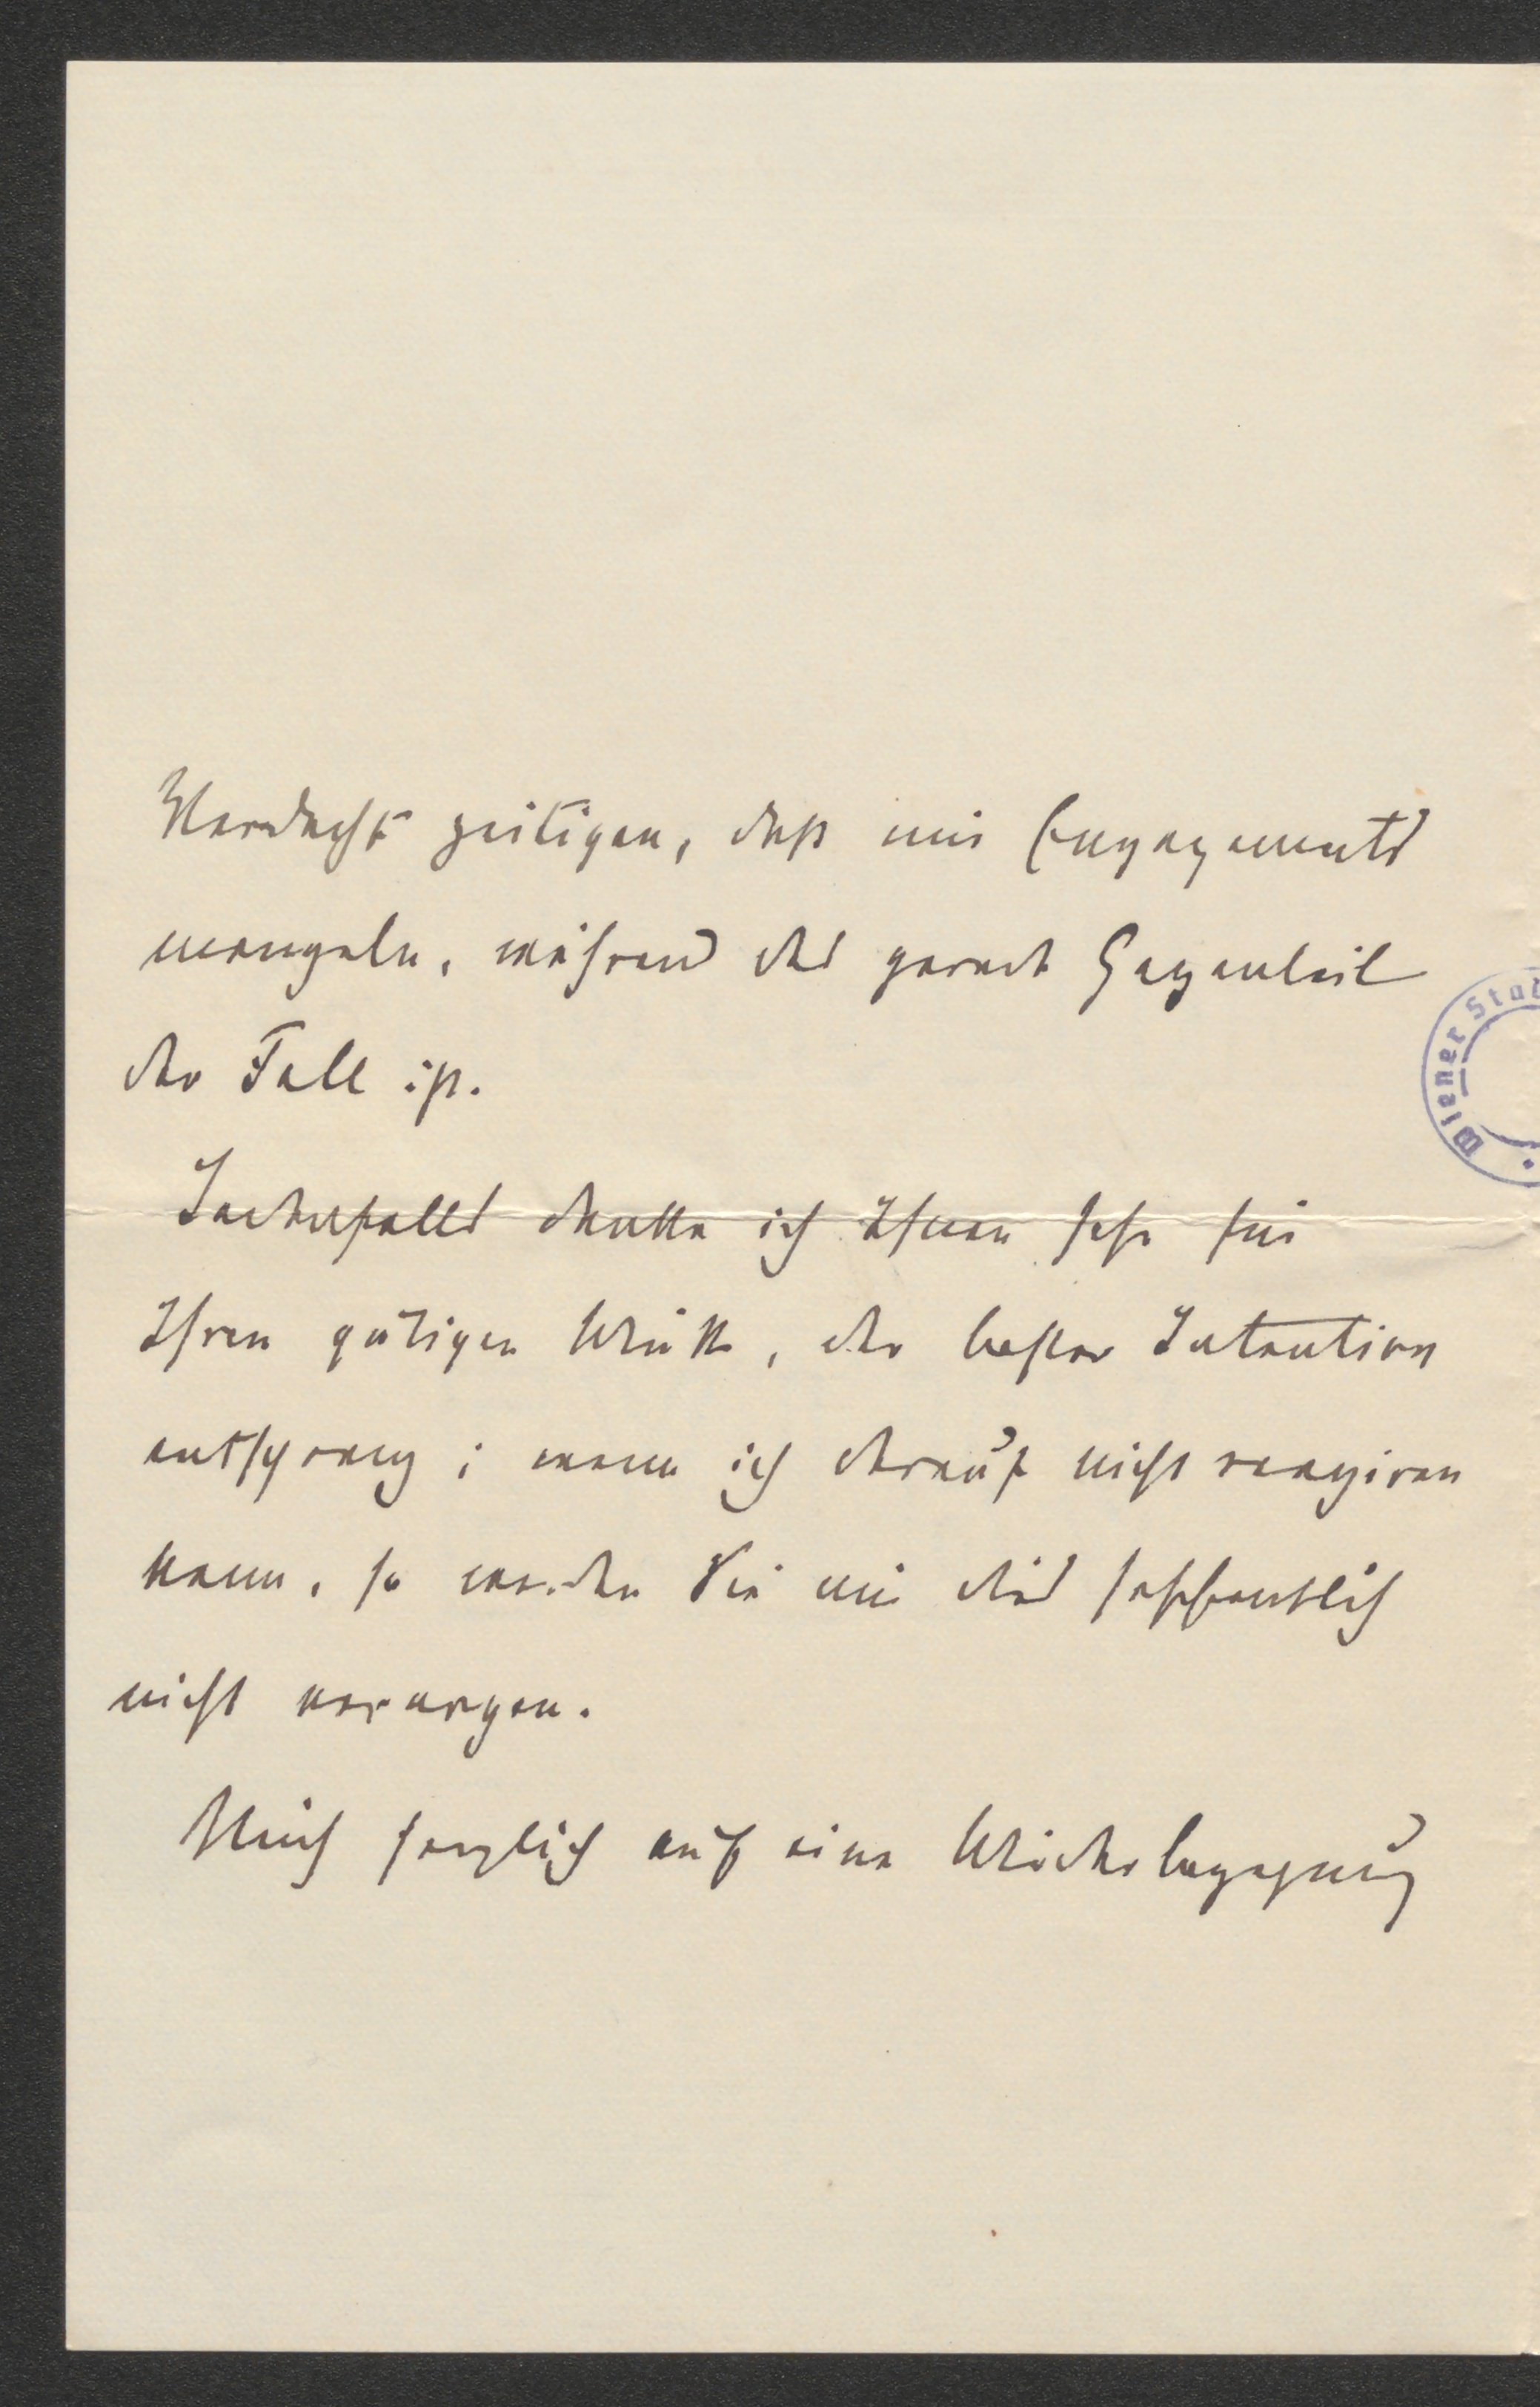 Verdacht zeitigen, daß mir Engagements
mangeln, während das gerade Gegenteil
der Fall ist.
Wiener Stad
Jedenfalls danke ich Ihnen sehr für
Ihren gütigen Wink, der bester Intention
entsprang; wenn ich darauf nicht reagiren
kann, so werden Sie mir dies hoffentlich
nicht verargen.
Mich herzlich auf eine Wiederbegegnung